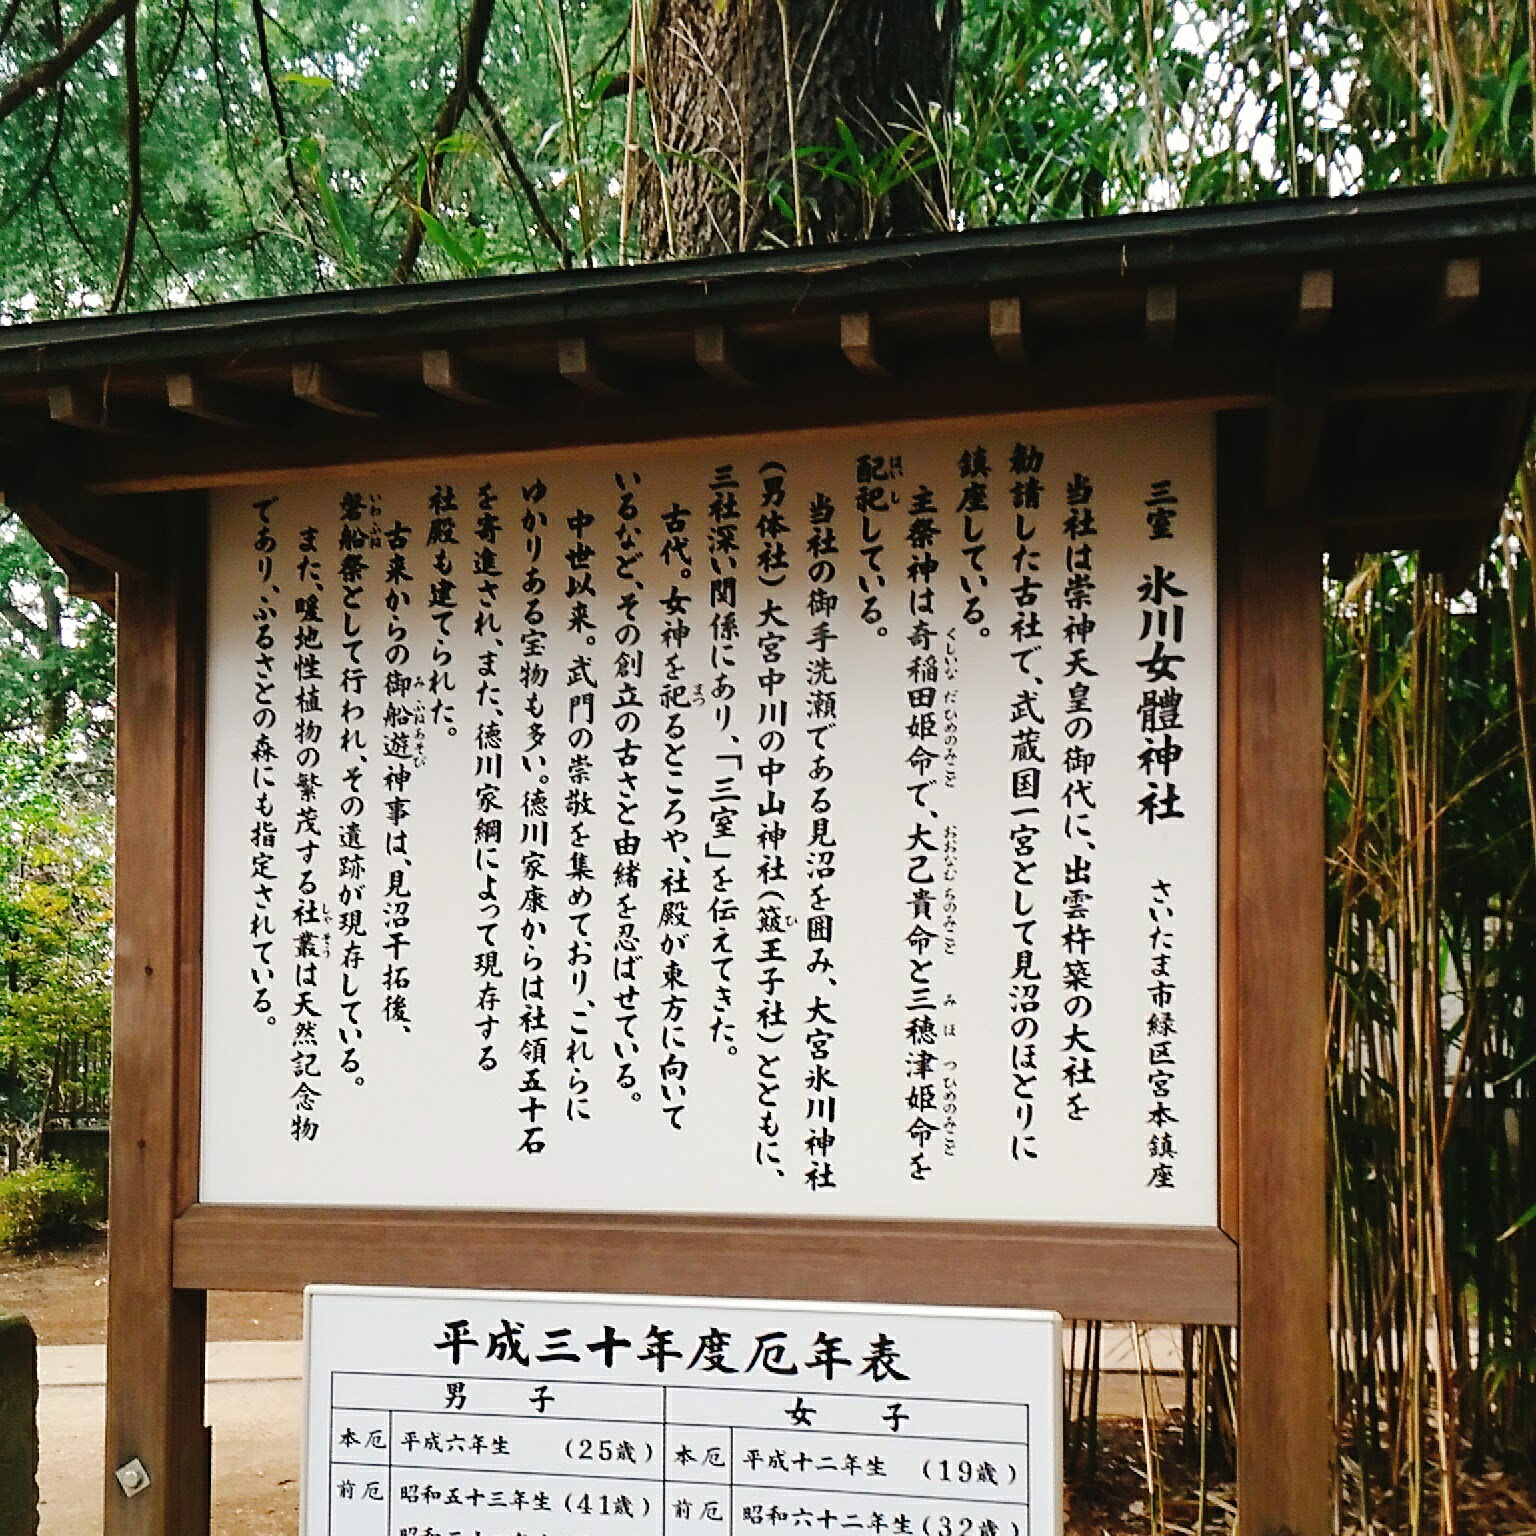 三室 氷川女體神社 さいたま市緑区宮本鎮座
当社は崇神天皇の御代に、出雲杵築の大社を
勧請した古社で、武蔵国一宮として見沼のほとりに
鎮座している。
主祭神は奇稲田姫命で、大己貴命と三穂津姫命を
くしいなだひめのみこと おおなむちのみこと みほつひめのみこと
配祀している。
はいし
当社の御手洗瀬である見沼を囲み、大宮氷川神社
(男体社)大宮中川の中山神社(簸王子社)とともに、
ひ
三社深い関係にあり、「三室」を伝えてきた。
古代。女神を祀るところや、社殿が東方に向いて
まつ
いるなど、その創立の古さと由緒を忍ばせている。
中世以来。武門の崇敬を集めており、これらに
ゆかりある宝物も多い。徳川家康からは社領五十石
を寄進され、また、徳川家綱によって現存する
社殿も建てられた。
古来からの御船遊神事は、見沼干拓後、
みふねあそび
磐船祭として行われ、その遺跡が現存している。
いわふね
また、暖地性植物の繁茂する社叢は天然記念物
しゃそう
であり、ふるさとの森にも指定されている。
平成三十年度厄年表
男子 女子
本厄 平成六年生 (25歳) 本厄 平成十二年生 (19歳)
前厄 昭和五十三年生(41歳) 前厄 昭和六十二年生(32歳)